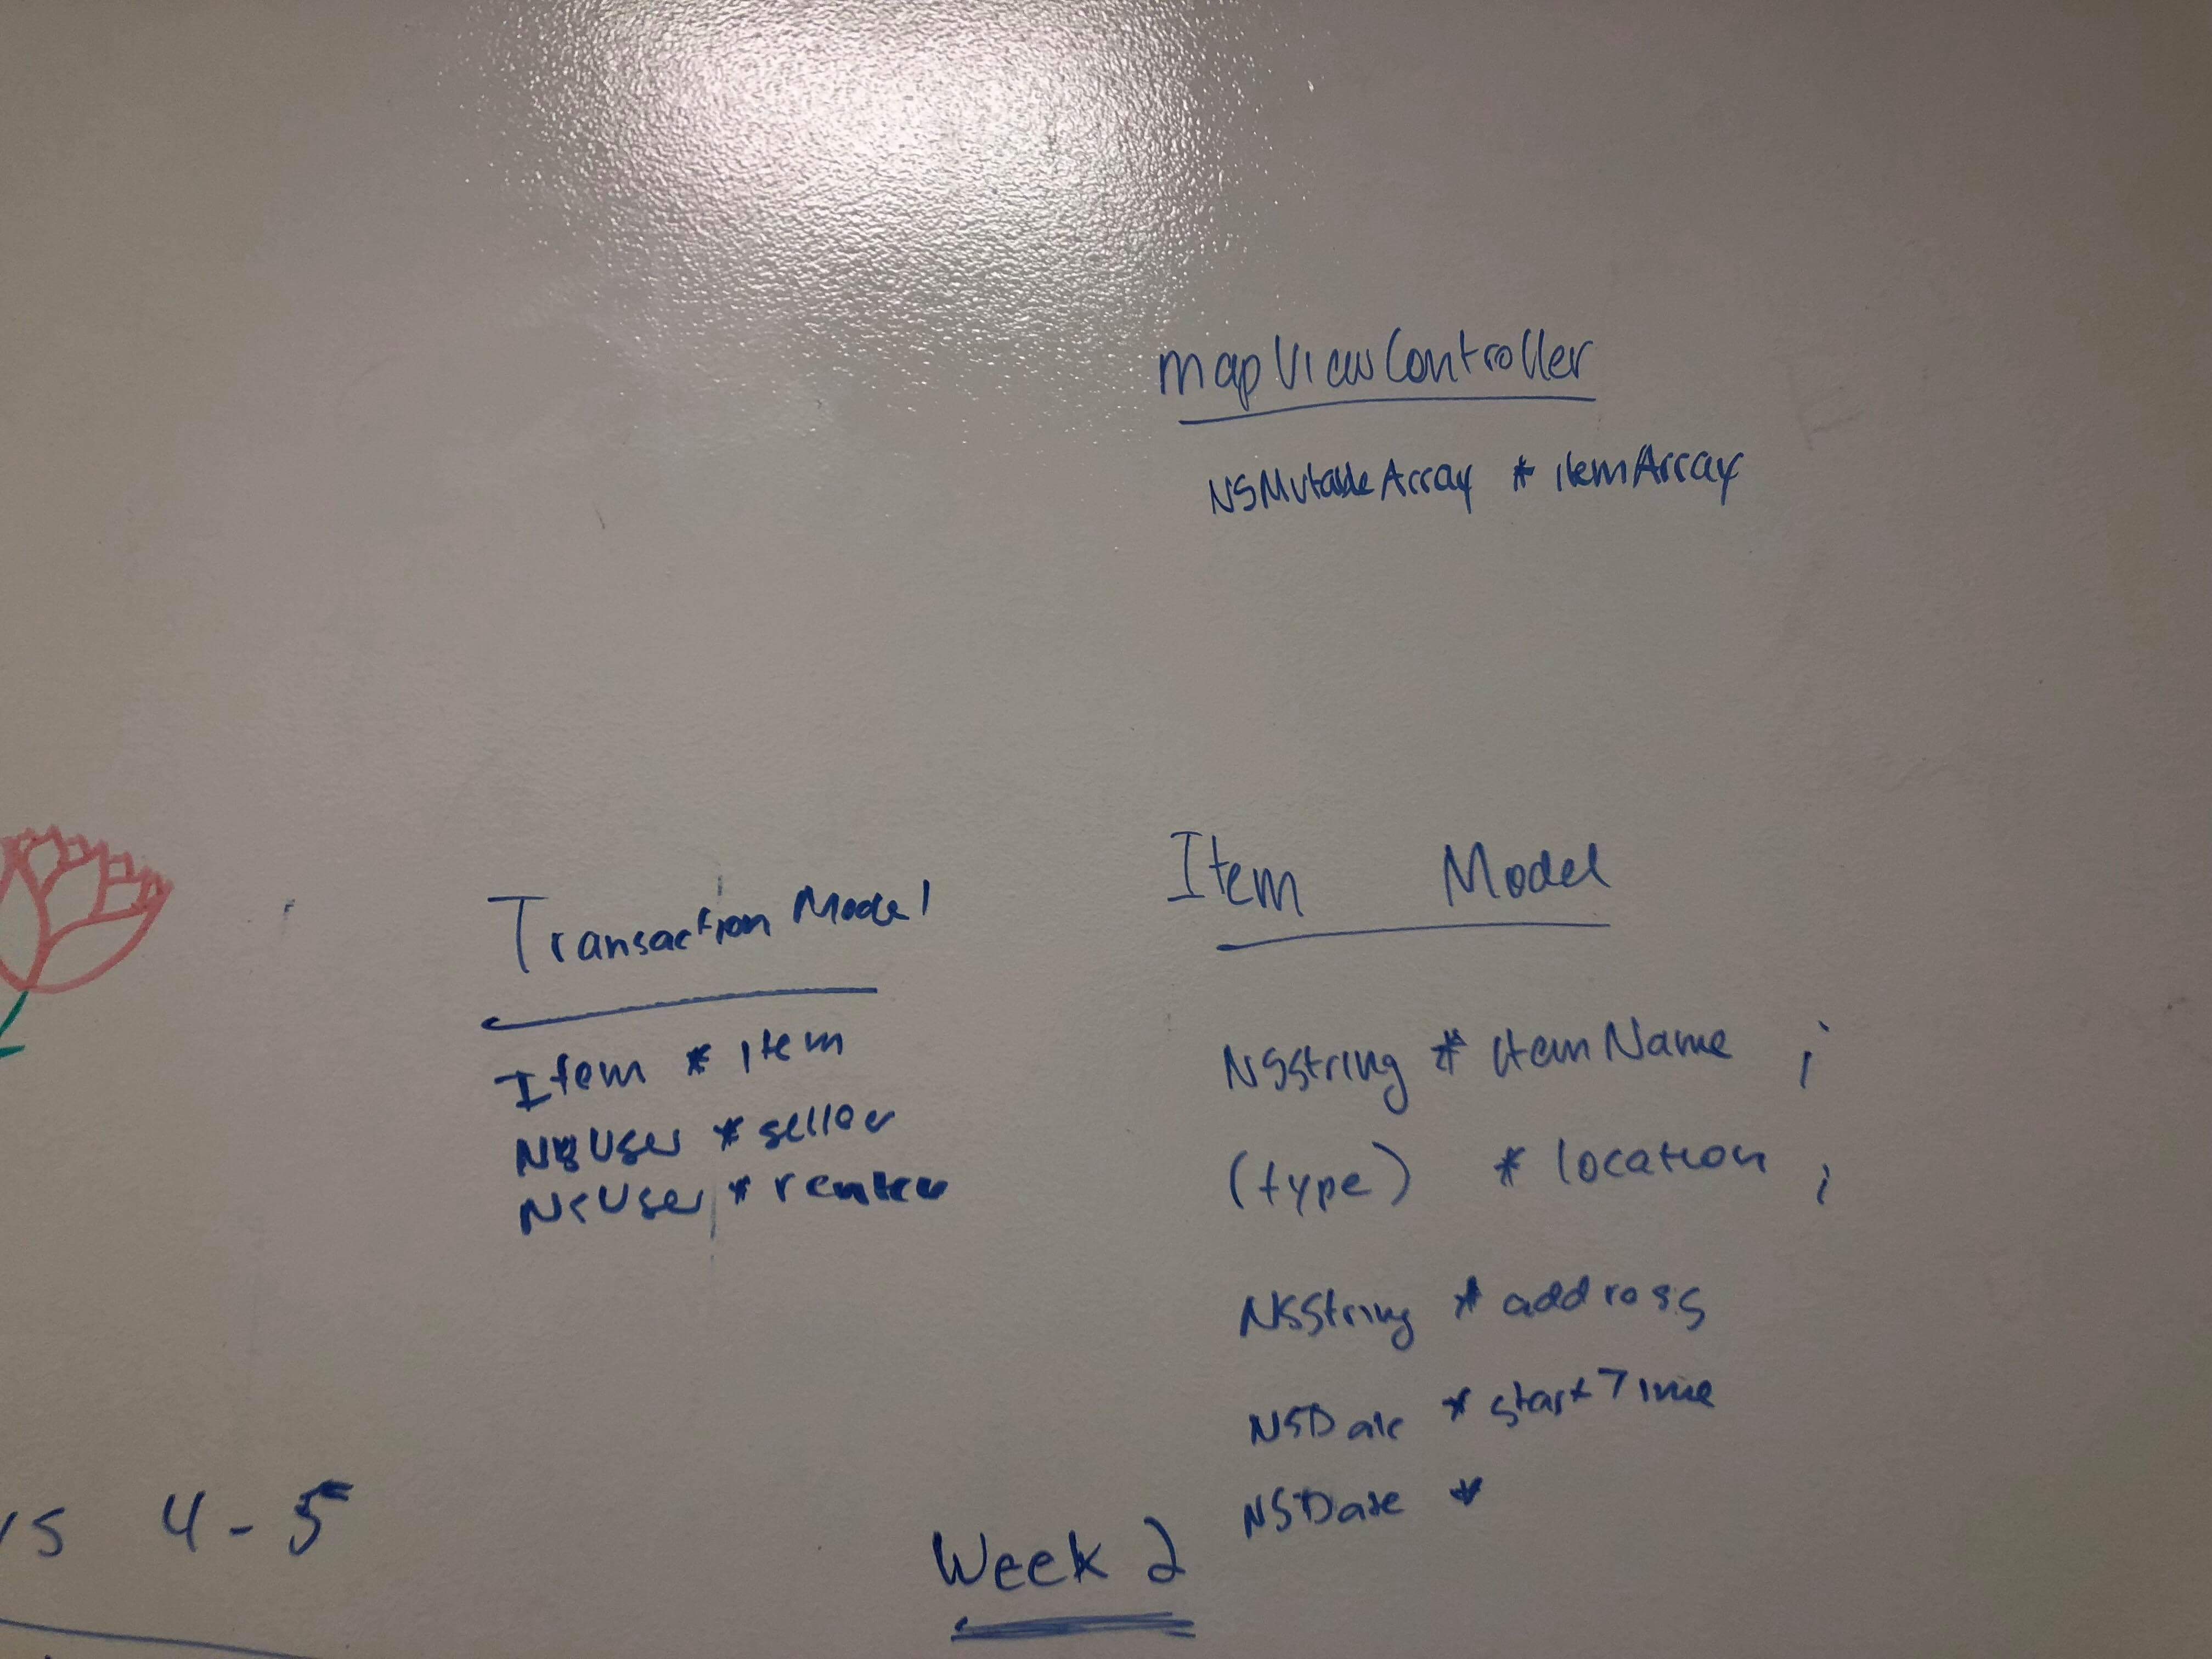 mapViewController
NSMutableArray * itemArray
Transaction Model
Item * item
NSUser * seller
NSUser * renter
Item Model
NSString * itemName ;
(type) * location ;
NSString * address
NSDate * startTime
NSDate *
4 - 5
Week 2